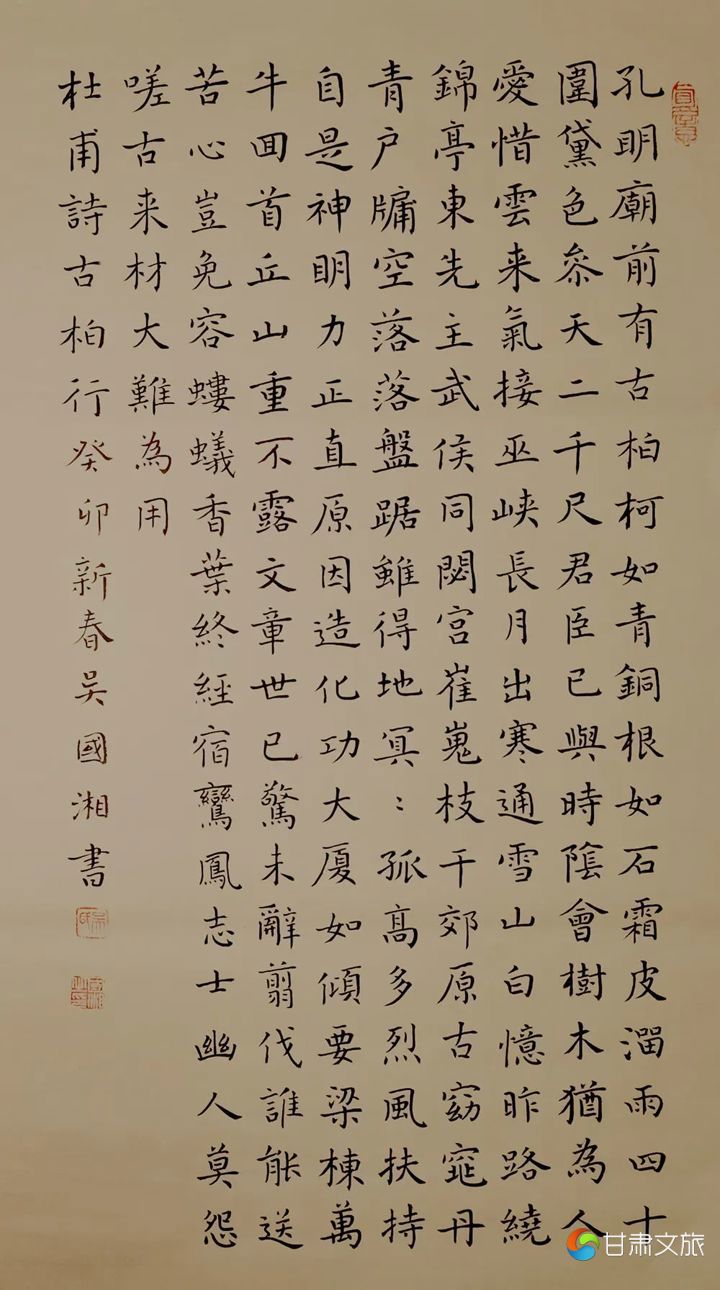 孔明廟前有古柏柯如青銅根如石霜皮溜雨四十
圍黛色叅天二千尺君臣已與時陰會樹木猶為人
愛惜雲来氣接巫峽長月出寒通雪山白憶昨路繞
錦亭東先主武侯同閟宮崔嵬枝干郊原古窈窕丹
青户牖空落落盤踞雖得地冥：孤高多烈風扶持
自是神明力正直原因造化功大厦如傾要梁棟萬
牛回首丘山重不露文章世已驚未辭翦伐誰能送
苦心豈免容螻蟻香葉終經宿鸞鳳志士幽人莫怨
嗟古来材大難為用
杜甫詩古柏行癸卯新春吴國湘書
甘肃文旅